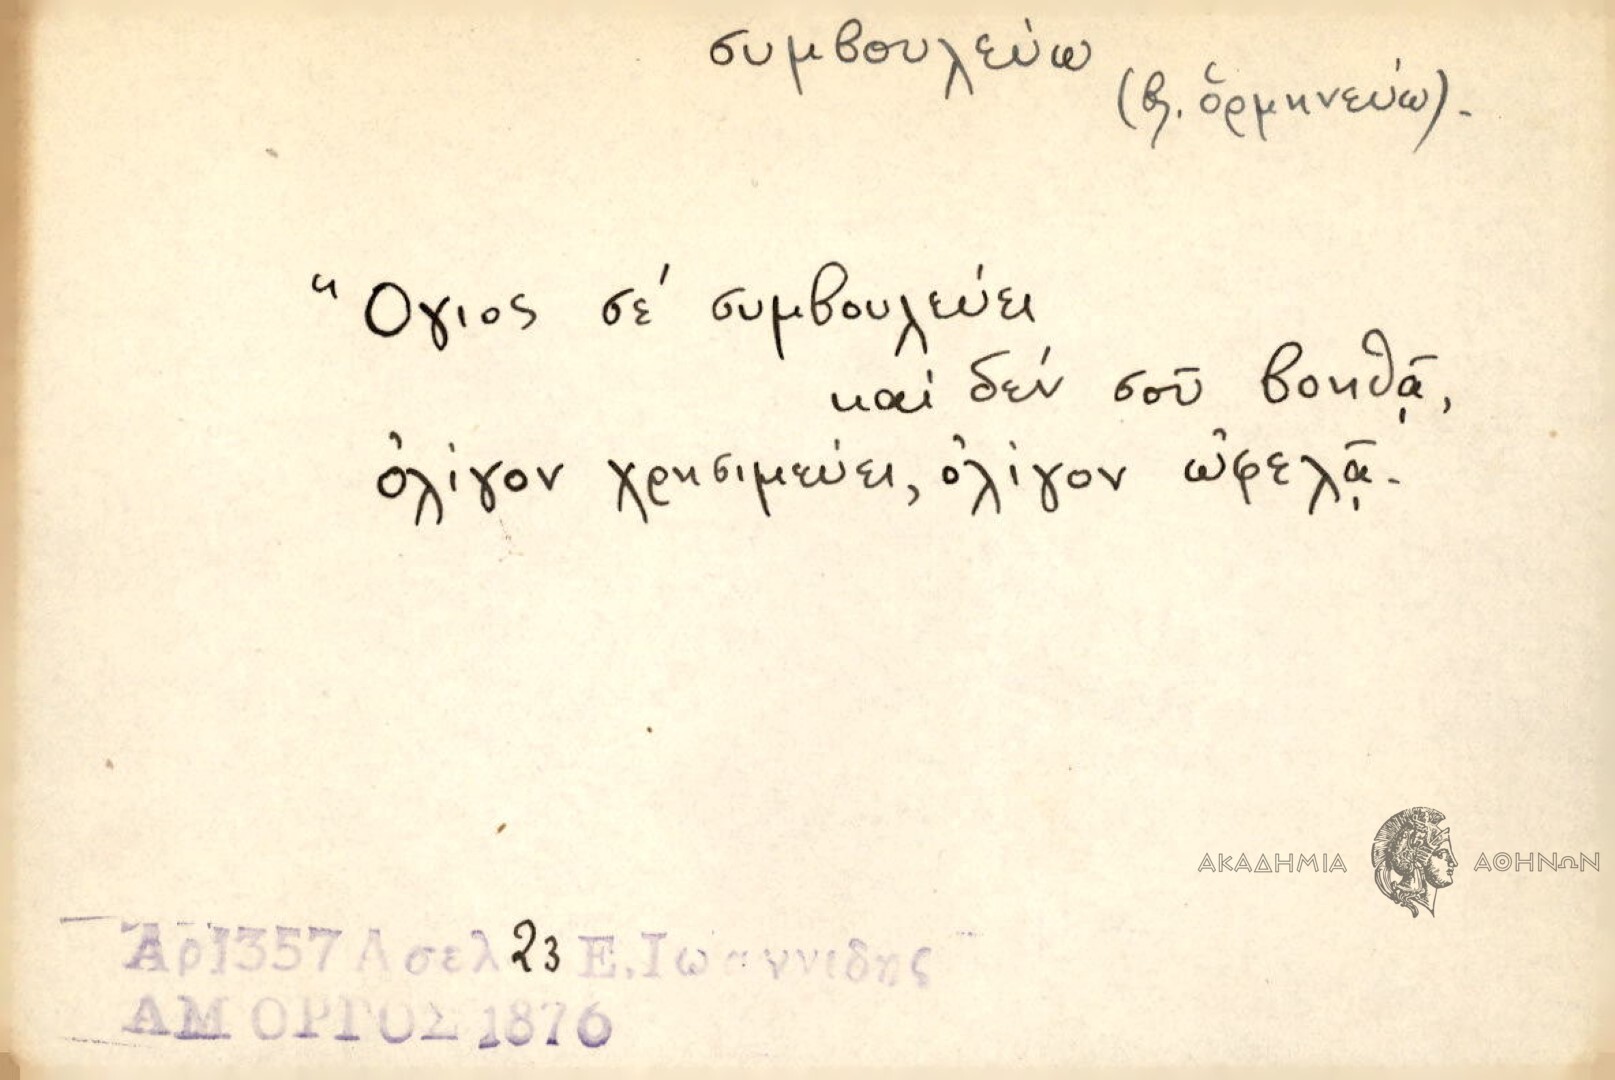 συμβουλεύω
(βλ. ὁρμηνεύω).
Ὅγιος σέ συμβουλεύει
καί δέν σοῦ βοηθᾷ,
ὀλίγον χρησιμεύει, ὀλίγον ὠφελᾷ.
ΑΚΑΔΗΜΙΑ ΑΘΗΝΩΝ
Αρ 1357 Α σελ 23 Ε. Ιωαννιδης
ΑΜΟΡΓΟΣ 1876